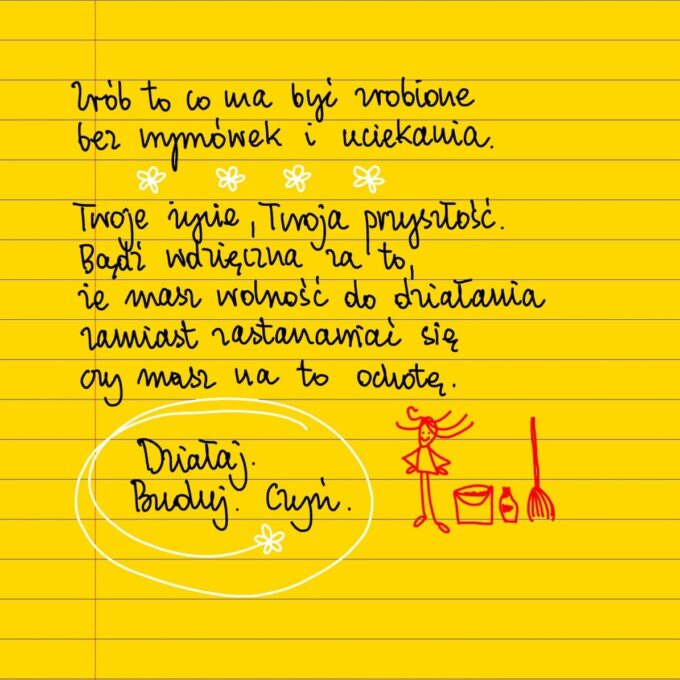 Zrób to co ma być zrobione
bez wymówek i uciekania.
Twoje życie, Twoja przyszłość.
Bądź wdzięczna za to,
że masz wolność do działania
zamiast zastanawiać się
czy masz na to ochotę.
Działaj.
Buduj. Czyń.